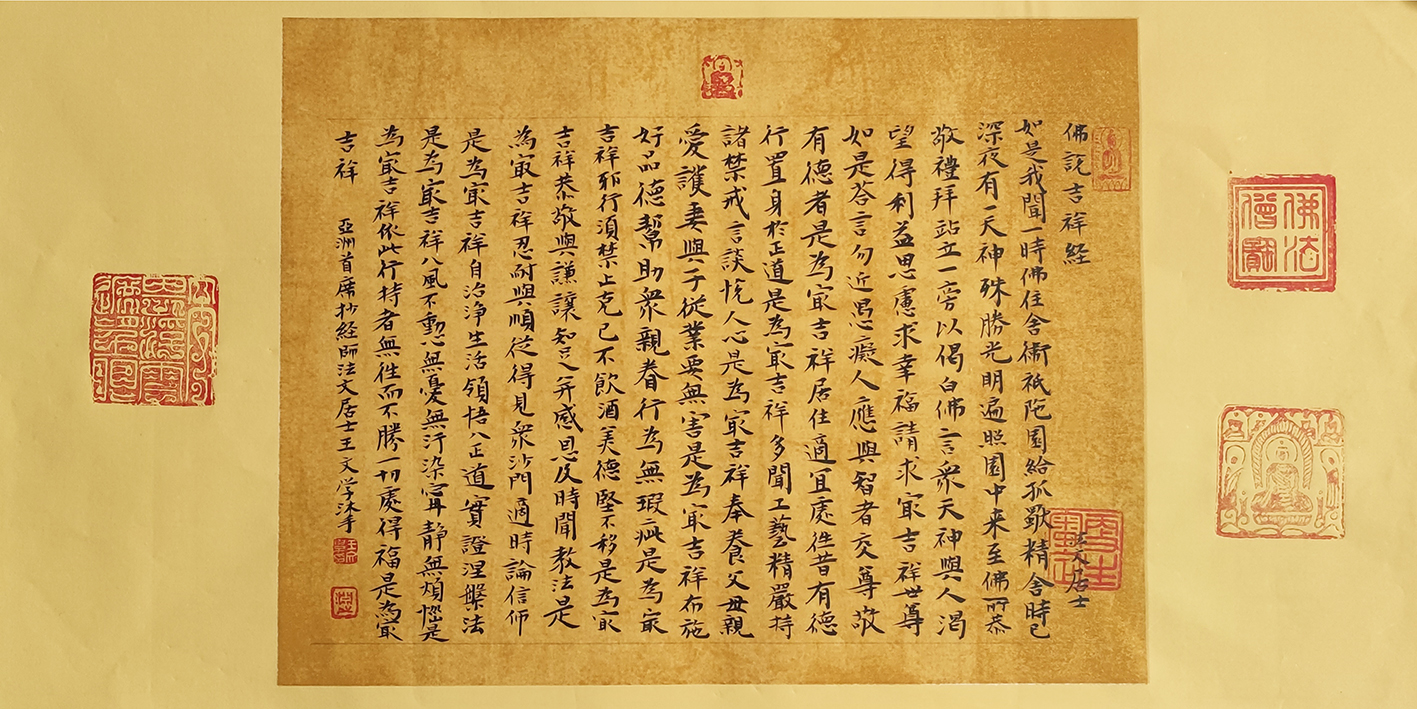 佛法
僧寶
佛説吉祥経
法文居士
如是我聞一時佛住舍衛祇陀園給孤獨精舍時已
深夜有一天神殊勝光明遍照園中来至佛所恭
敬禮拜站立一旁以偈白佛言衆天神與人渴
望得利益思慮求幸福請求冣吉祥世尊
如是答言勿近愚癡人應與智者交尊敬
有德者是為冣吉祥居住適宜處徃昔有德
行置身於正道是為冣吉祥多聞工藝精嚴持
諸禁戒言談悅人心是為冣吉祥奉養父母親
愛護妻與子從業要無害是為冣吉祥布施
好品德幫助衆親眷行為無瑕疵是為冣
吉祥邪行須禁止克己不飲酒美德堅不移是為冣
吉祥恭敬與謙讓知足并感恩及時聞教法是
為冣吉祥忍耐與順從得見衆沙門適時論信仰
是為冣吉祥自治淨生活領悟八正道實證涅槃法
是為冣吉祥八風不動心無憂無汙染寧静無煩惱是
為冣吉祥依此行持者無徃而不勝一切處得福是為冣
吉祥
亞洲首席抄経師法文居士王文学沐手